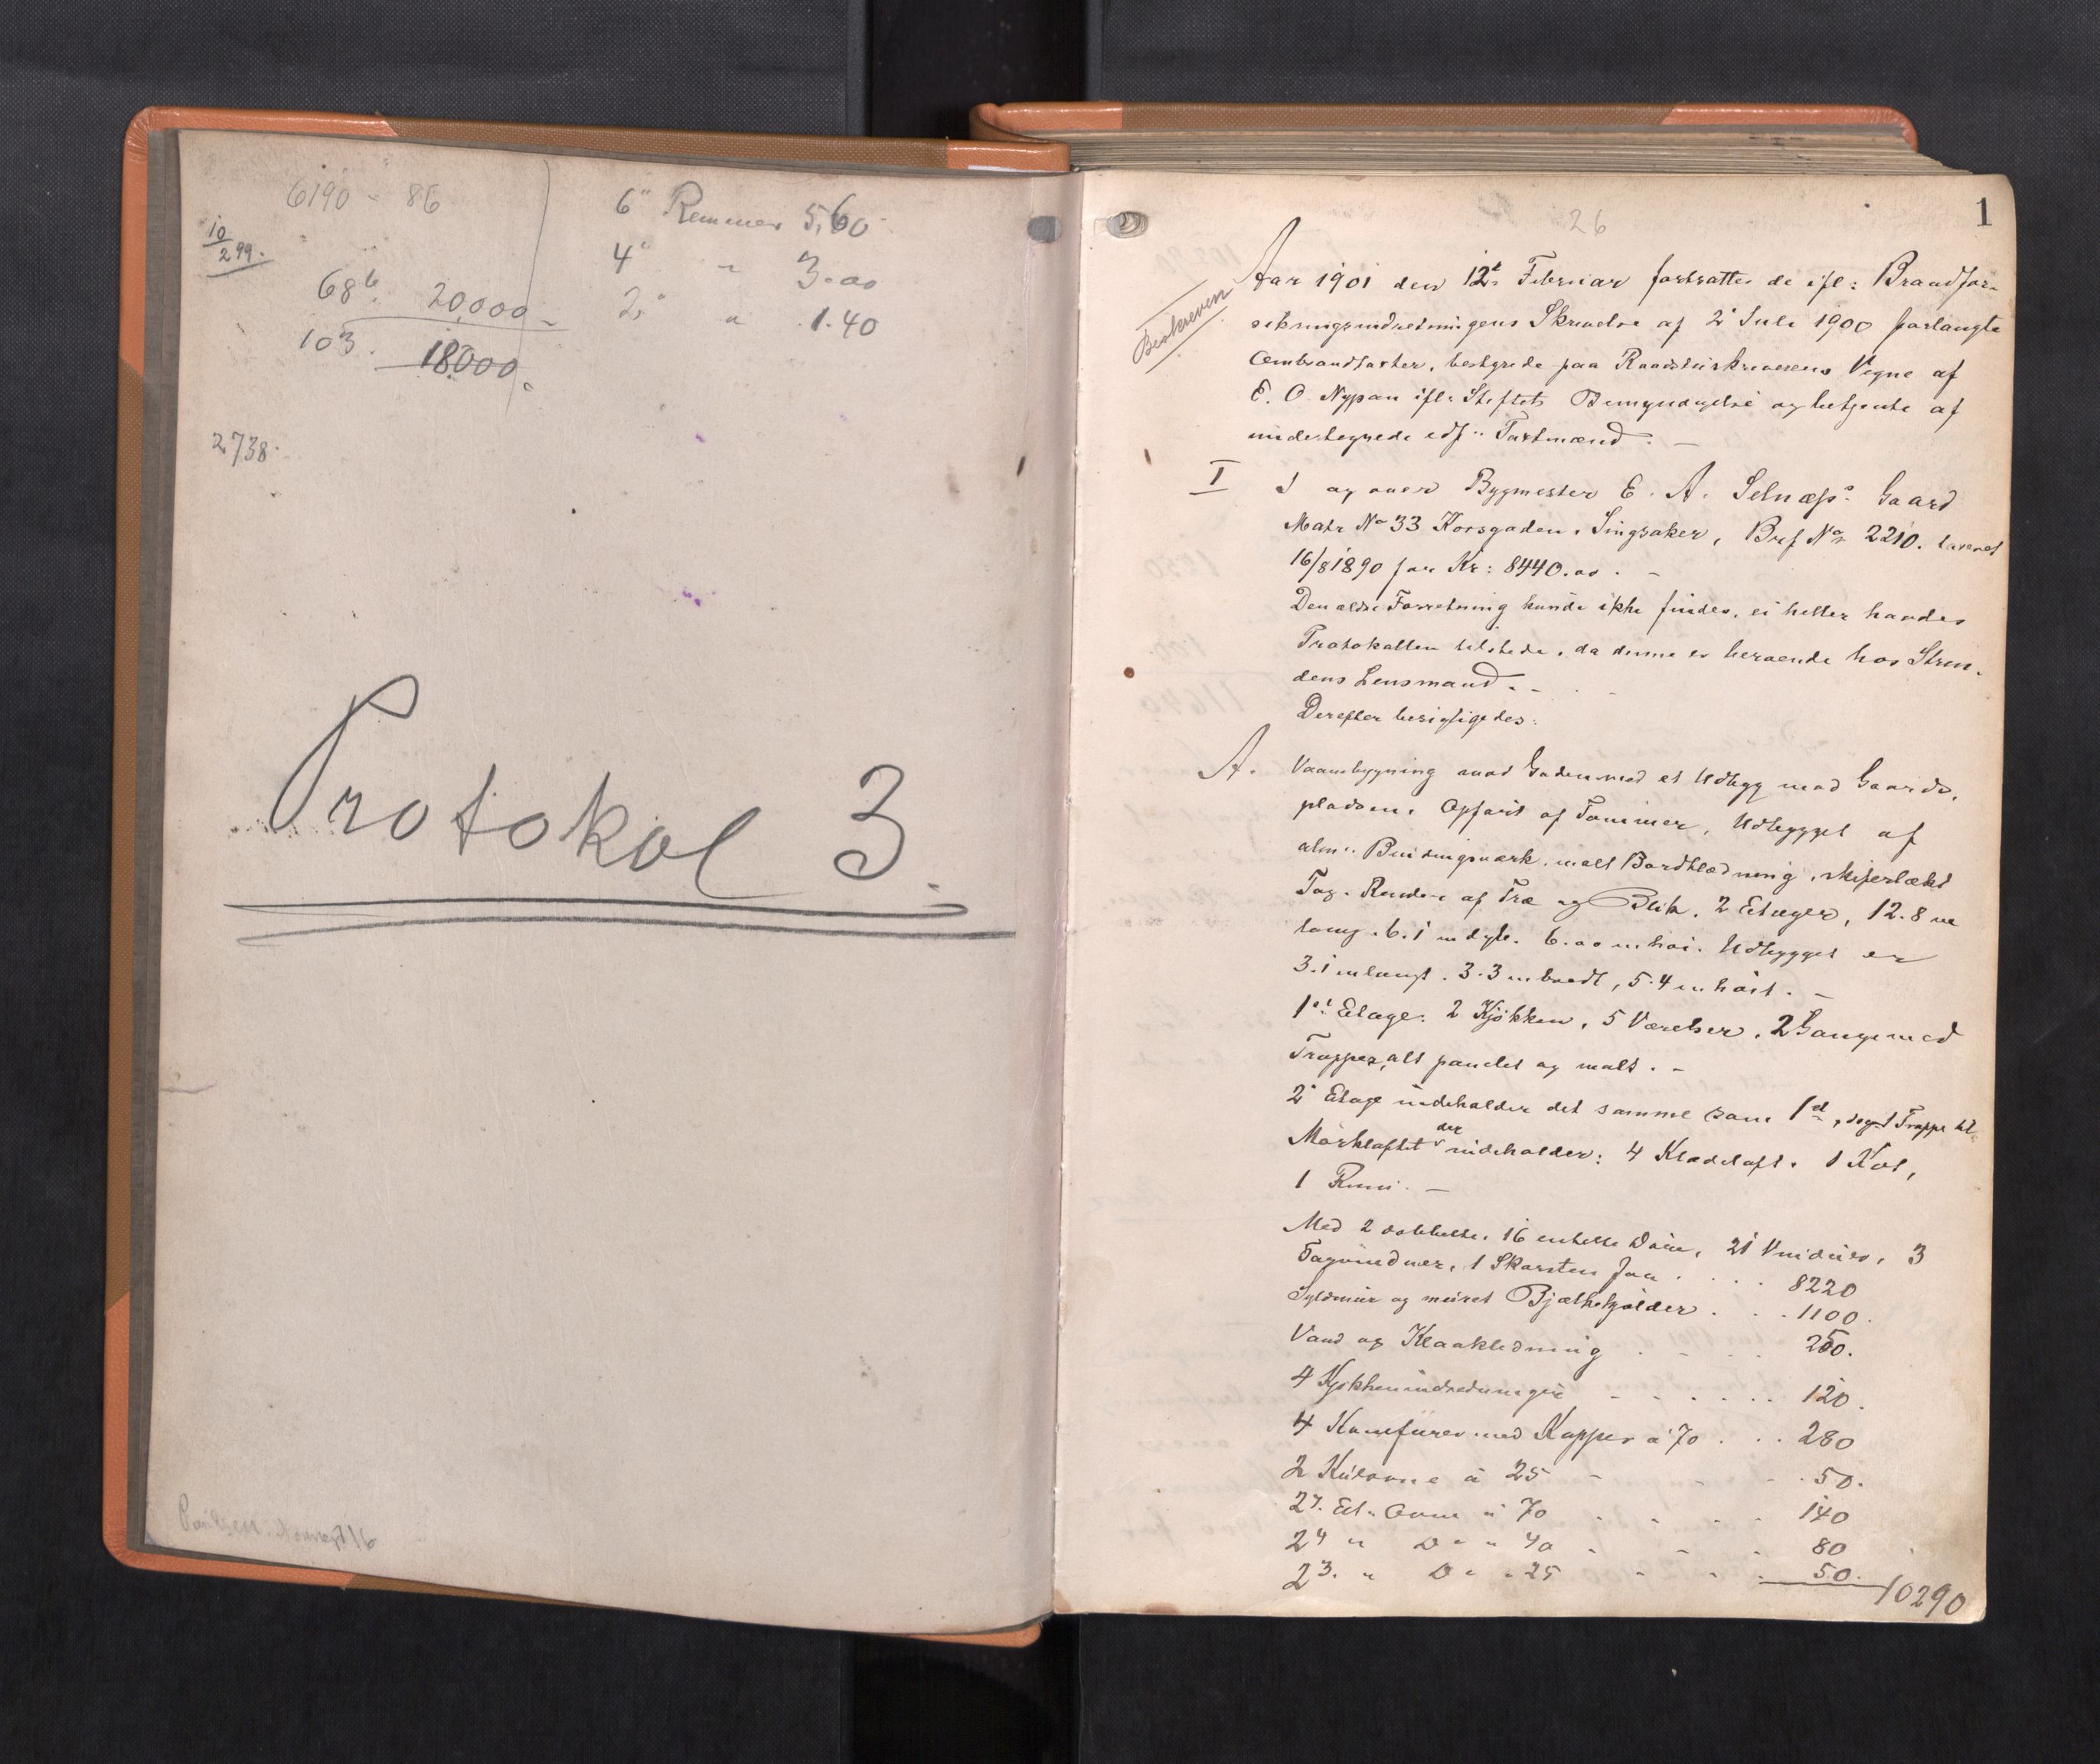 6190 - 86
10/2 99.
68 b. 20,000
103. 18000
2738.
6" Remmer 5,60
4" " 3.00
2" " 1.40
Protokol 3.
1
26
Beskreven
Aar 1901 den 12te Februar fortsattes de ifl: Brandfor-
sikringsindretningens Skrivelse af 2 Juli 1900 forlangte
Ombrandtaxter, bestyrede paa Raadstuskriverens Vegne af
E. O. Nypan ifl: Stiftets Bemyndigelse og betjente af
undertegnede edf: Taxtmænd. -
I I og over Bygmester E. A. Selnæss: Gaard
Matr No 33 Korsgaden, Singsaker, Brf No 2210. taxeret
16/8 1890 for Kr: 8440.00. -
Den ældre Forretning kunde ikke findes, ei heller havdes
Protokollen tilstede, da denne er beroende hos Strin-
dens Lensmand. -
Derefter besigtigedes:
A. Vaaningsbygning mod Gaden med et Udbygg mod Gaards-
pladsen. Opført af Tømmer, Udbygget af
alm: Bindingsværk, malt Bordklædning, skifertækt
Tag. Render af Træ og Blik. 2 Etager, 12.8 m
lang. 6.1 m dyb. 6.00 m høi. Udbygget er
3.1 m langt. 3.3 m bredt, 5.4 m høit. -
1st Etage: 2 Kjøkken, 5 Værelser, 2 Gange med
Trapper, alt panelet og malt. -
2 Etage indeholder det samme som 1st, dog 1 Trappe til
Mørkloftet der indeholder: 4 Klædeloft. 1 Kot,
1 Rum. -
Med 2 dobbelte, 16 enkelte Døre, 21 Vinduer, 3
Tagvinduer, 1 Skorsten for . . . . 8220
Syldmur og muret Bjælkekjælder . . . 1100.
Vand og Kloakledning . . . . 250.
4 Kjøkkenindredninger . . . . . 120.
4 Komfurer med Kapper a 70 . . . 280
2 Kulovne a 25 - - - 50.
2 . Et. Ovne a 70 . . . . 140
2 4 " Do " 40 . . . 80
2 3. " Do " 25 . . . 50.
10290